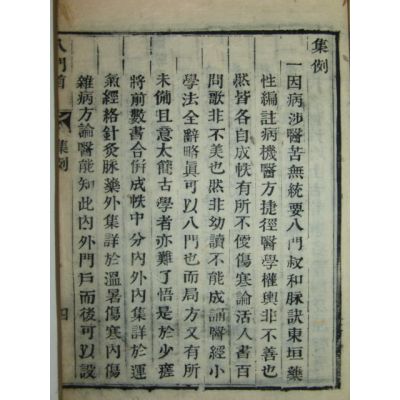 集例
一因病涉醫苦無統要八門叔和脉訣東垣藥
性編註病機醫方捷徑醫學權輿非不善也
然皆各自成帙有所不便傷寒論活人書百
問歌非不美也然非幼讀不能成誦醫經小
學法全辭略眞可以八門也而局方又有所
未備且意太簡古學者亦難了悟是於少瘥
將前數書合倂成帙中分內外內集詳於運
氣經絡針灸脉藥外集詳於溫暑傷寒內傷
雜病方論醫能知此內外門戶而後可以設
入門首
集例
四